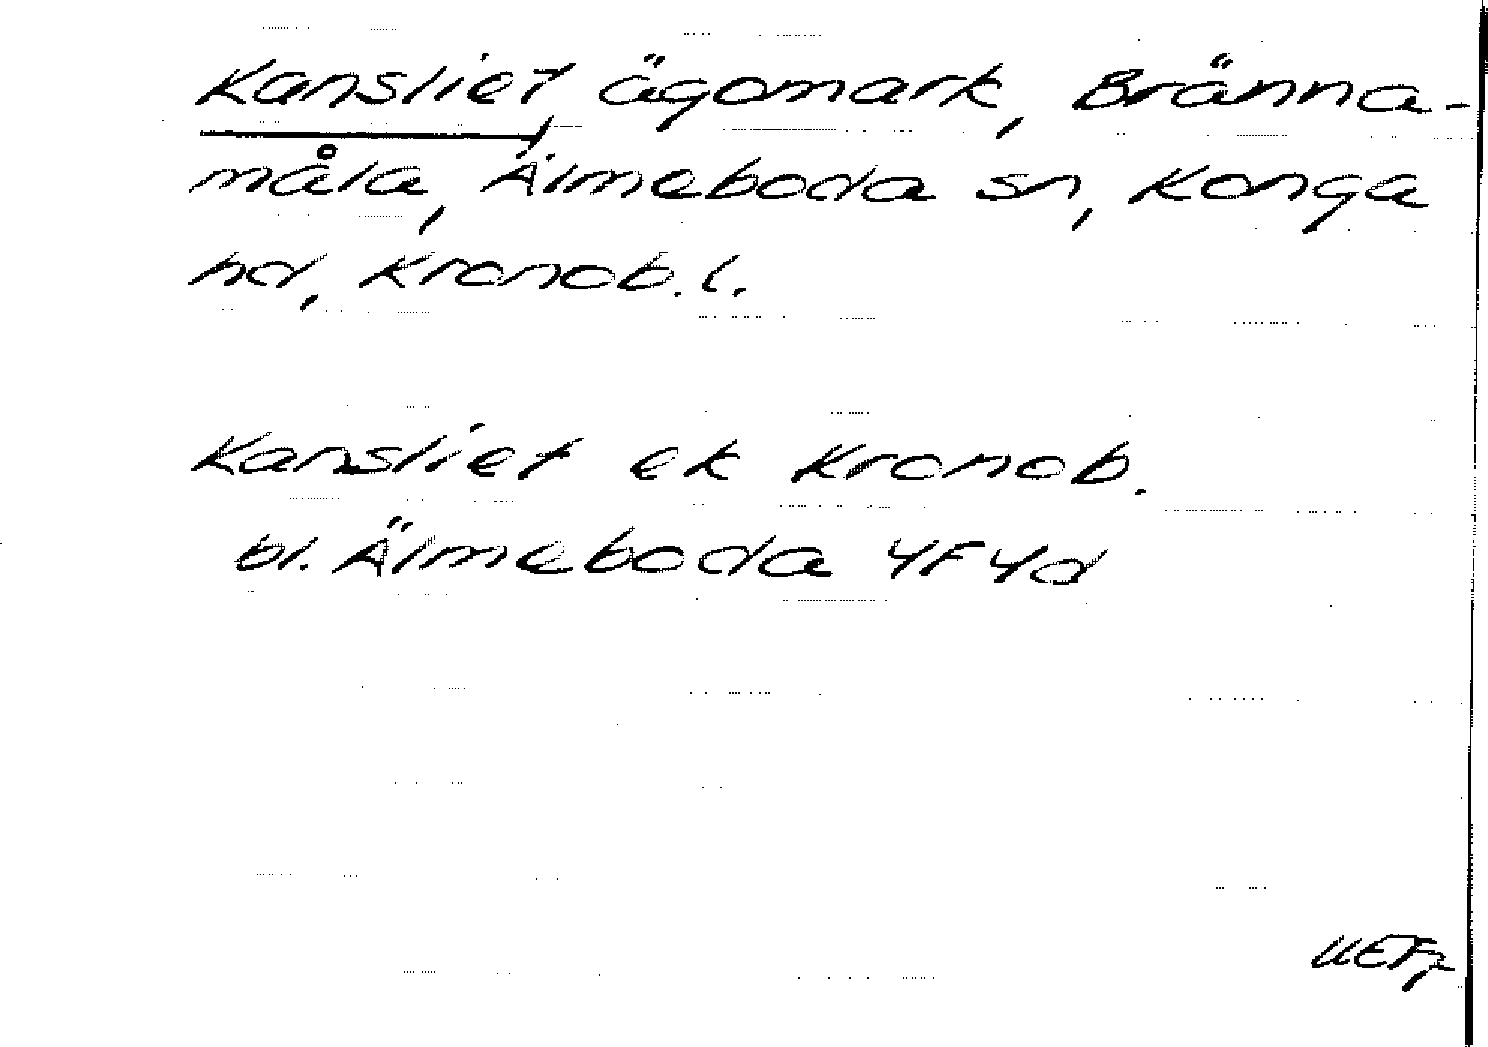 Kansliet, ägomark, Bränna-
måla, Älmeboda sn, Konga
hd, Kronob.l.
Kansliet ek Kronob.
bl. Älmeboda 4F4d